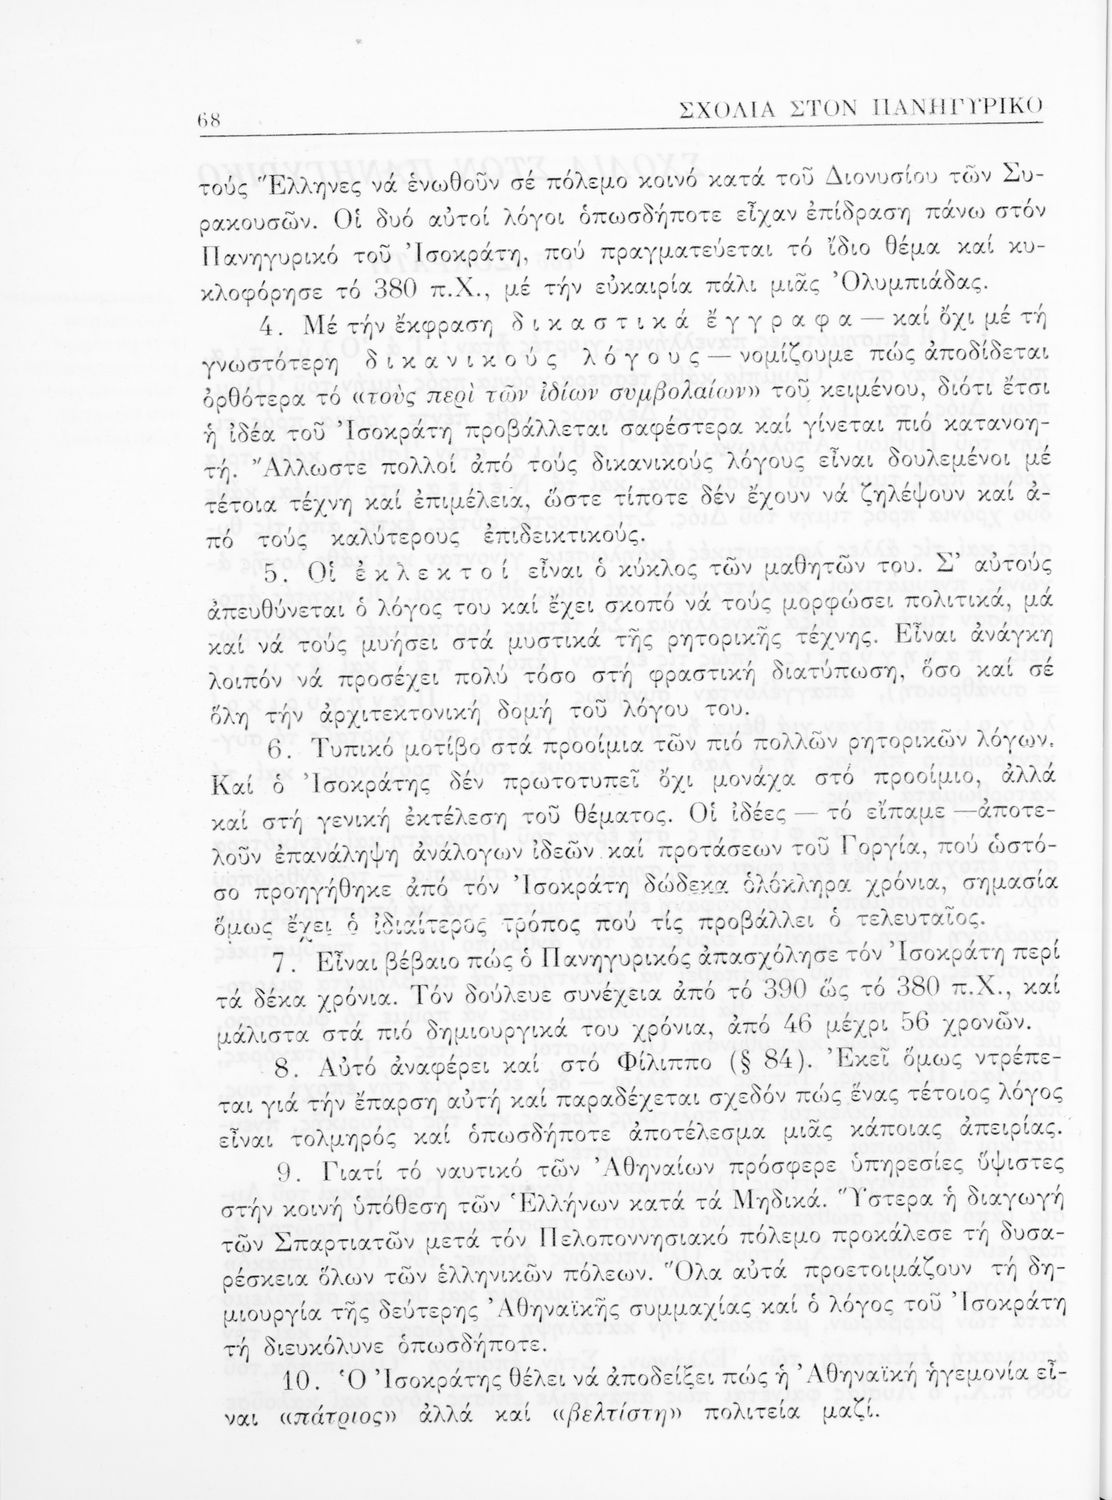 68
ΣΧΟΛΙΑ ΣΤΟΝ ΠΑΝΗΓΥΡΙΚΟ
τούς Ἕλληνες νά ἑνωθοῦν σέ πόλεμο κοινό κατά τοῦ Διονυσίου τῶν Συ-
ρακουσῶν. Οἱ δυό αὐτοί λόγοι ὁπωσδήποτε εἶχαν ἐπίδραση πάνω στόν
Πανηγυρικό τοῦ Ἰσοκράτη, πού πραγματεύεται τό ἴδιο θέμα καί κυ-
κλοφόρησε τό 380 π.Χ., μέ τήν εὐκαιρία πάλι μιᾶς Ὀλυμπιάδας.
4. Μέ τήν ἔκφραση δικαστικά ἔγγραφα — καί ὄχι μέ τή
γνωστότερη δικανικούς λόγους — νομίζουμε πώς ἀποδίδεται
ὀρθότερα τό «τοὺς περὶ τῶν ἰδίων συμβολαίων» τοῦ κειμένου, διότι ἔτσι
ἡ ἰδέα τοῦ Ἰσοκράτη προβάλλεται σαφέστερα καί γίνεται πιό κατανοη-
τή. Ἄλλωστε πολλοί ἀπό τούς δικανικούς λόγους εἶναι δουλεμένοι μέ
τέτοια τέχνη καί ἐπιμέλεια, ὥστε τίποτε δέν ἔχουν νά ζηλέψουν καί ἀ-
πό τούς καλύτερους ἐπιδεικτικούς.
5. Οἱ ἐκλεκτοί εἶναι ὁ κύκλος τῶν μαθητῶν του. Σ’ αὐτούς
ἀπευθύνεται ὁ λόγος του καί ἔχει σκοπό νά τούς μορφώσει πολιτικά, μά
καί νά τούς μυήσει στά μυστικά τῆς ρητορικῆς τέχνης. Εἶναι ἀνάγκη
λοιπόν νά προσέχει πολύ τόσο στή φραστική διατύπωση, ὅσο καί σέ
ὅλη τήν ἀρχιτεκτονική δομή τοῦ λόγου του.
6. Τυπικό μοτίβο στά προοίμια τῶν πιό πολλῶν ρητορικῶν λόγων.
Καί ὁ Ἰσοκράτης δέν πρωτοτυπεῖ ὄχι μονάχα στό προοίμιο, ἀλλά
καί στή γενική ἐκτέλεση τοῦ θέματος. Οἱ ἰδέες — τό εἴπαμε —ἀποτε-
λοῦν ἐπανάληψη ἀνάλογων ἰδεῶν καί προτάσεων τοῦ Γοργία, πού ὡστό-
σο προηγήθηκε ἀπό τόν Ἰσοκράτη δώδεκα ὁλόκληρα χρόνια, σημασία
ὅμως ἔχει ὁ ἰδιαίτερος τρόπος πού τίς προβάλλει ὁ τελευταῖος.
7. Εἶναι βέβαιο πώς ὁ Πανηγυρικός ἀπασχόλησε τόν Ἰσοκράτη περί
τά δέκα χρόνια. Τόν δούλευε συνέχεια ἀπό τό 390 ὥς τό 380 π.Χ., καί
μάλιστα στά πιό δημιουργικά του χρόνια, ἀπό 46 μέχρι 56 χρονῶν.
8. Αὐτό ἀναφέρει καί στό Φίλιππο (§ 84). Ἐκεῖ ὅμως ντρέπε-
ται γιά τήν ἔπαρση αὐτή καί παραδέχεται σχεδόν πώς ἕνας τέτοιος λόγος
εἶναι τολμηρός καί ὁπωσδήποτε ἀποτέλεσμα μιᾶς κάποιας ἀπειρίας.
9. Γιατί τό ναυτικό τῶν Ἀθηναίων πρόσφερε ὑπηρεσίες ὕψιστες
στήν κοινή ὑπόθεση τῶν Ἑλλήνων κατά τά Μηδικά. Ὕστερα ἡ διαγωγή
τῶν Σπαρτιατῶν μετά τόν Πελοποννησιακό πόλεμο προκάλεσε τή δυσα-
ρέσκεια ὅλων τῶν ἑλληνικῶν πόλεων. Ὅλα αὐτά προετοιμάζουν τή δη-
μιουργία τῆς δεύτερης Ἀθηναϊκῆς συμμαχίας καί ὁ λόγος τοῦ Ἰσοκράτη
τή διευκόλυνε ὁπωσδήποτε.
10. Ὁ Ἰσοκράτης θέλει νά ἀποδείξει πώς ἡ Ἀθηναϊκή ἡγεμονία εἶ-
ναι «πάτριος» ἀλλά καί «βελτίστη» πολιτεία μαζί.